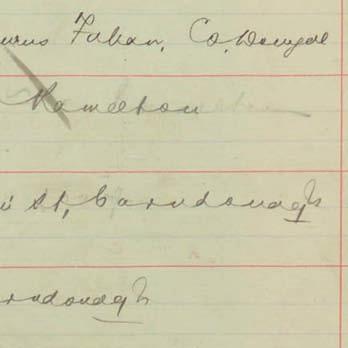 Fahan, Co. Donegal
Rameeton
St, Carndonagh
rndonagh